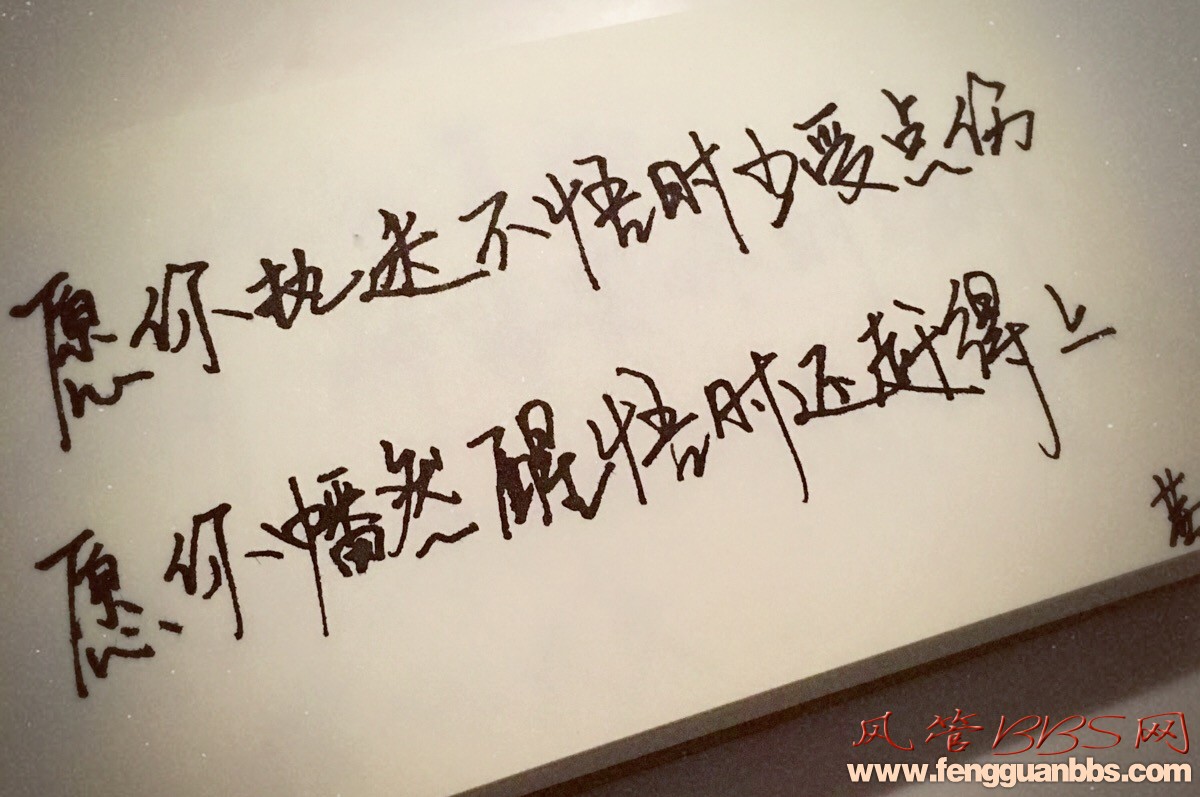 愿你执迷不悟时少受点伤
愿你幡然醒悟时还赶得上
风管BBS网
www.fengguanbbs.com